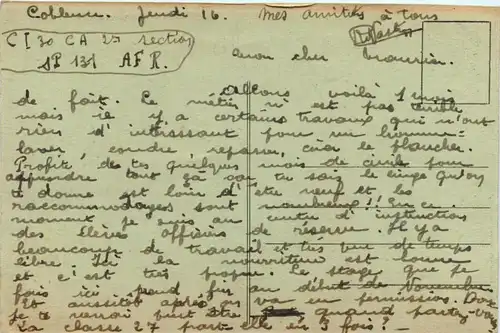 Coblence. Jeudi 16. Mes amitiés à tous
CI 30 CA 2e section
SP 131 AFR.
mon cher Maurice.
Allons voilà 1 mois
de fait. Le métier n'est pas terrible
mais il y a certains travaux qui n'ont
rien d'intéressant pour un homme
laver, coudre repasser, cirer le plancher.
Profite des tes quelques mois de civil pour
apprendre tout ça car tu sais le linge qu'on
t donne est loin d'être neuf et les
raccommodages sont nombreux!! En ce
moment je suis au centre d'instruction
des Elèves officiers de réserve. Il y a
beaucoup de travail et très peu de temps
libre Ici la nourriture est bonne
et c'est très propre. Le stage que je
fais ici prend fin au début de Novembre
Et aussitôt après on va en permission. Donc
je te verrai peut être quand partez-v
La classe 27 part-elle en 3 fois?